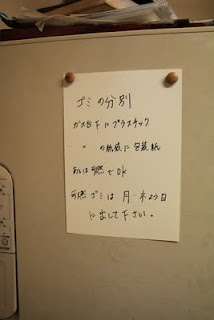 ゴミの分別
ガス台下にプラスチック
〃 の紙袋に包装紙
あとは可燃でOK
可燃ゴミは月・木よう日
に出して下さい。